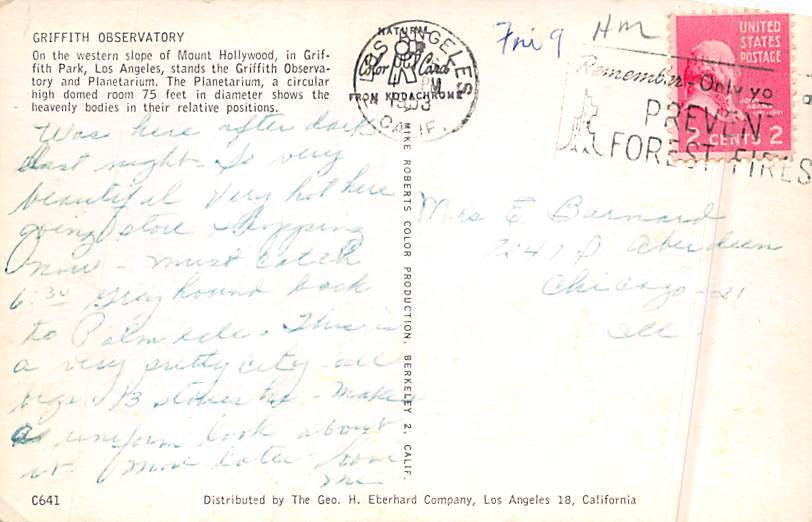 GRIFFITH OBSERVATORY
On the western slope of Mount Hollywood, in Grif-
fith Park, Los Angeles, stands the Griffith Observa-
tory and Planetarium. The Planetarium, a circular
high domed room 75 feet in diameter shows the
heavenly bodies in their relative positions.
Was here after dark
last night - So very
beautiful Very hot here
going store shopping
now - must catch
6:30 Greyhound back
to Palmdale. This is
a very pretty city all
bldgs 13 stories
uniform look about
it More later love
me
C641
NATURAL
Color Cards
FROM KODACHROME
LOS ANGELES
CALIF.
MIKE ROBERTS COLOR PRODUCTION, BERKELEY 2, CALIF.
Fri 9
UNITED
STATES
POSTAGE
2 CENTS 2
Remember. Only yo
PREVENT
FOREST FIRES
Mrs E Barnard
7247 S Aberdeen
Chicago - 21
Ill
Distributed by The Geo. H. Eberhard Company, Los Angeles 18, California